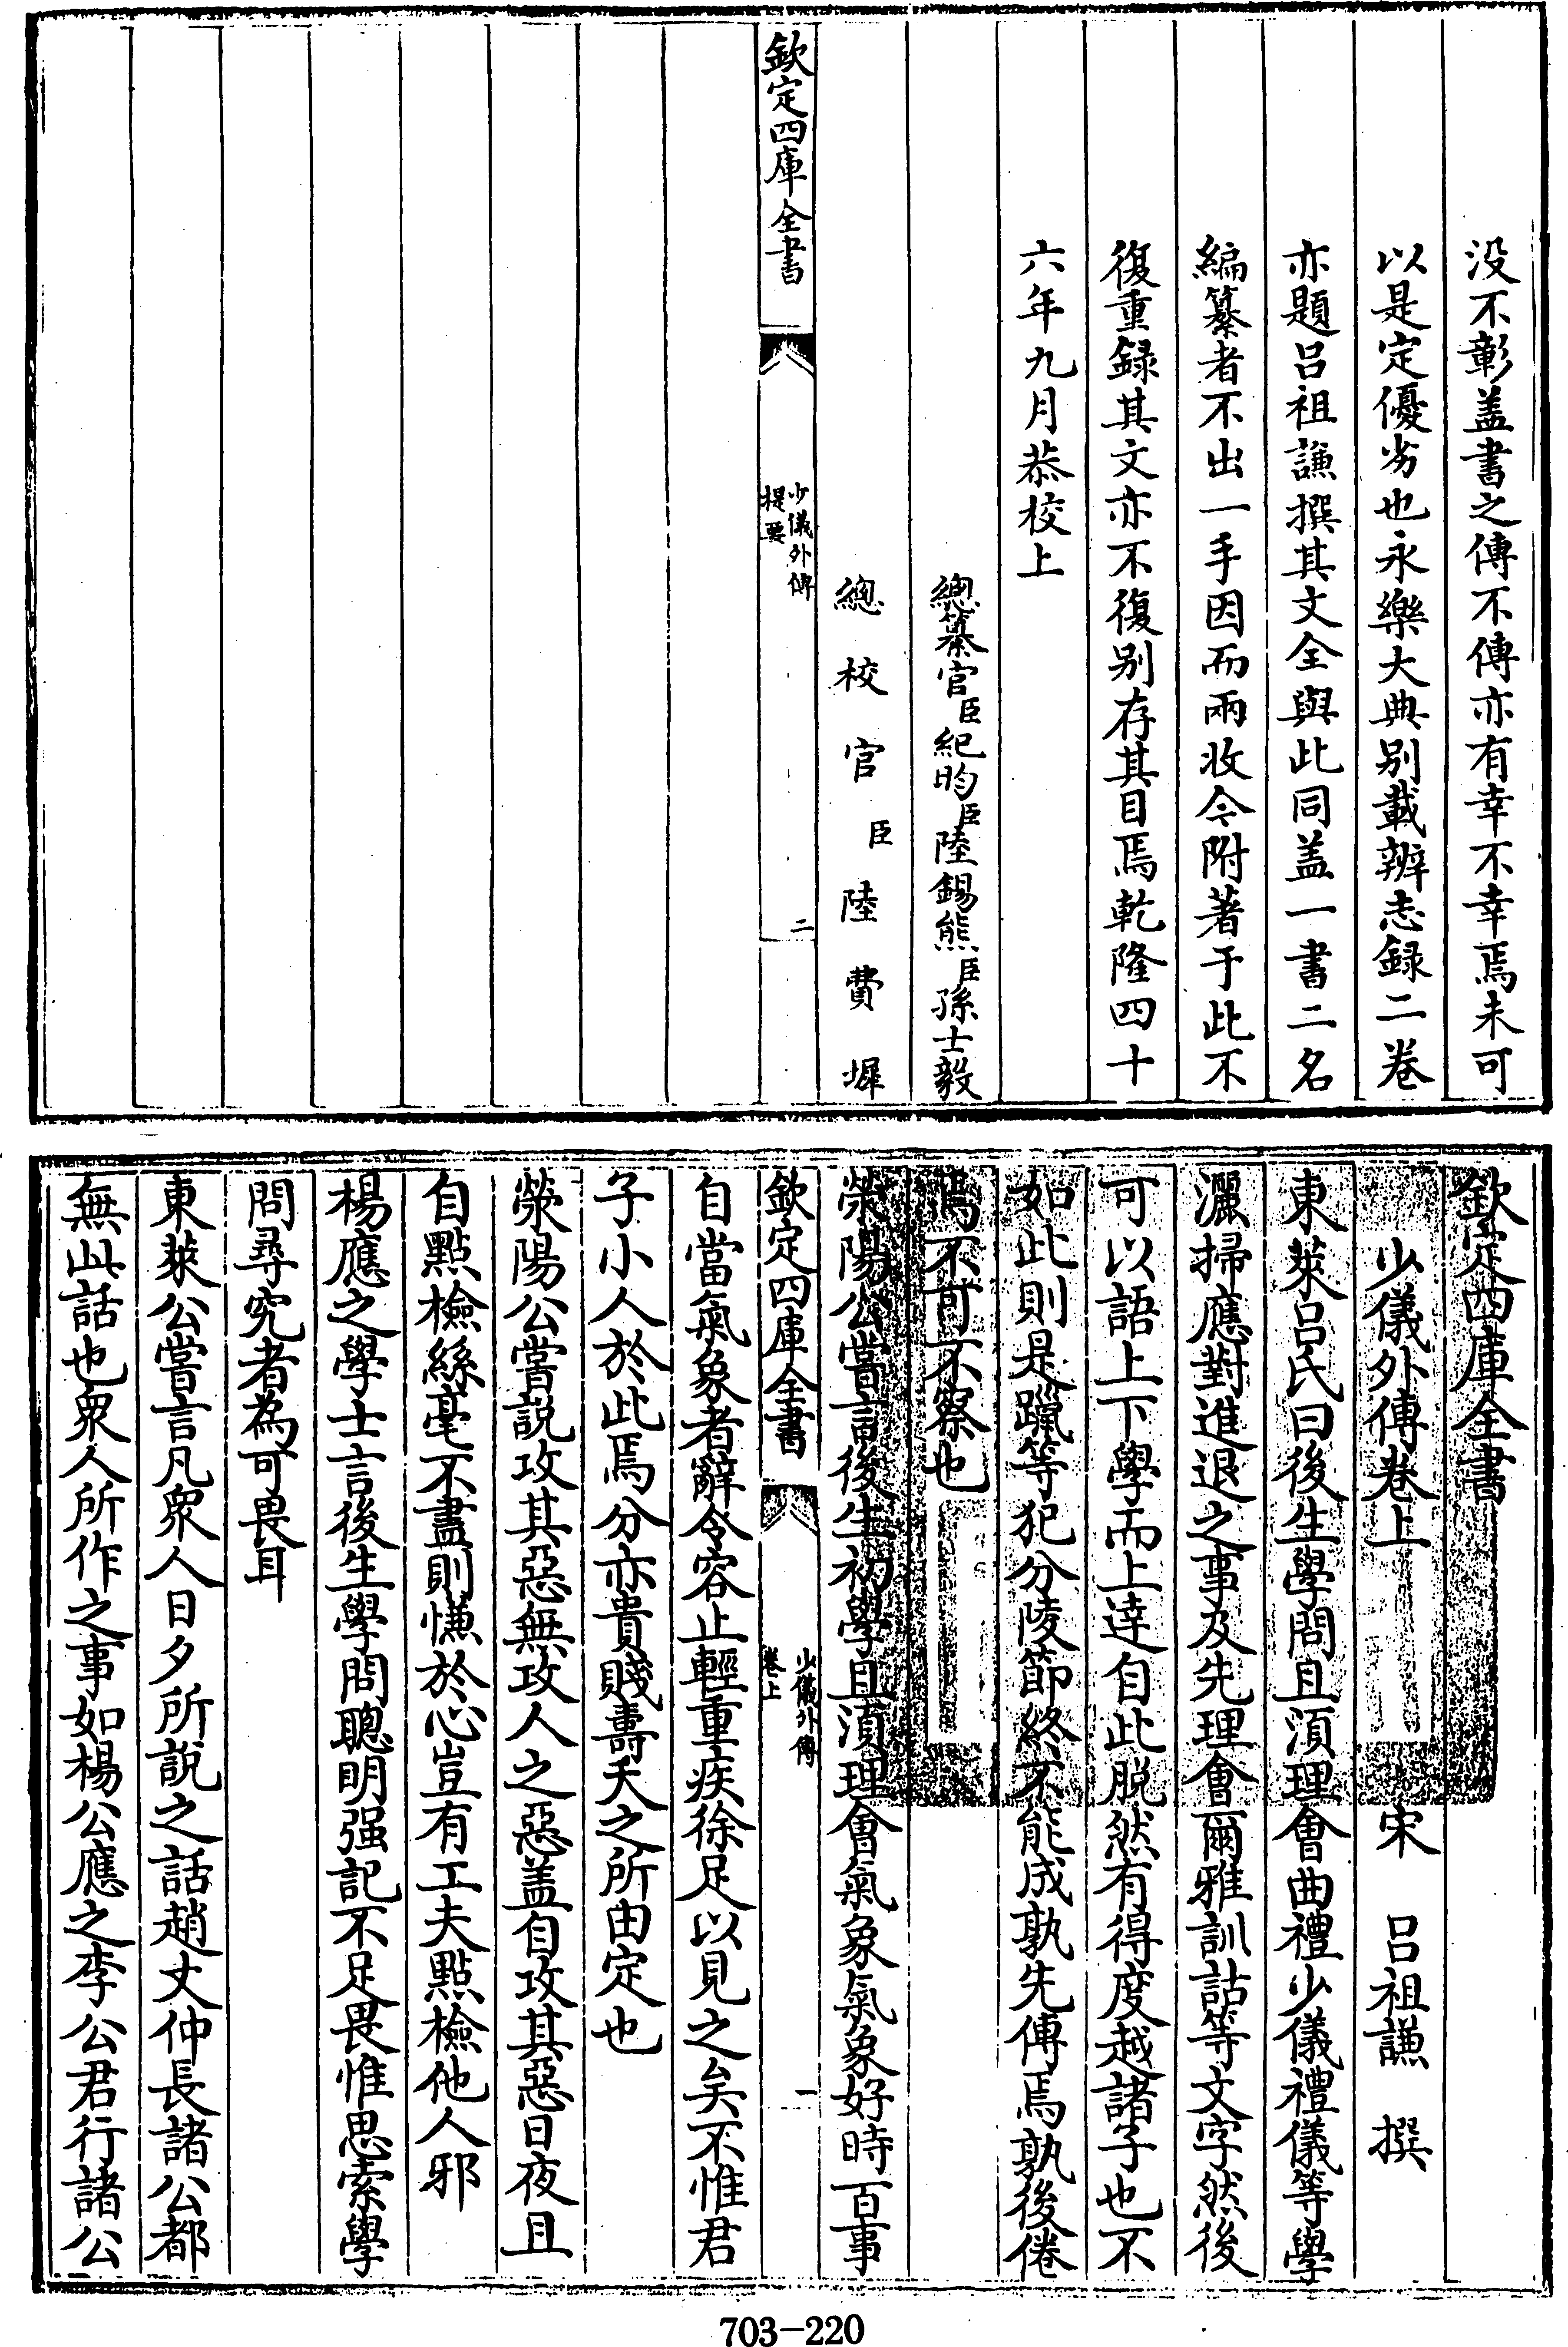 没不彰盖書之傳不傳亦有幸不幸焉未可
以是定優劣也永樂大典别載辨志録二卷
亦題吕祖謙撰其文全與此同盖一書二名
編纂者不出一手因而兩收今附著于此不
復重録其文亦不復别存其目焉乾隆四十
六年九月恭校上
總纂官臣紀昀臣陸錫熊臣孫士毅
總校官臣陸費墀
欽定四庫全書
少儀外傳
提要
二
欽定四庫全書
少儀外傳卷上
宋 吕祖謙 撰
東萊吕氏曰後生學問且須理會曲禮少儀禮儀等學
灑掃應對進退之事及先理會爾雅訓詁等文字然後
可以語上下學而上達自此脱然有得度越諸子也不
如此則是躐等犯分陵節終不能成孰先傳焉孰後倦
焉不可不察也
滎陽公嘗言後生初學且須理會氣象氣象好時百事
欽定四庫全書
少儀外傳
卷上
一
自當氣象者辭令容止輕重疾徐足以見之矣不惟君
子小人於此焉分亦貴賤壽夭之所由定也
滎陽公嘗説攻其惡無攻人之惡盖自攻其惡日夜且
自點檢絲毫不盡則慊於心豈有工夫點檢他人邪
楊應之學士言後生學問聰明强記不足畏惟思索學
問尋究者為可畏耳
東萊公嘗言凡衆人日夕所説之話趙丈仲長諸公都
無此話也衆人所作之事如楊公應之李公君行諸公
703-220